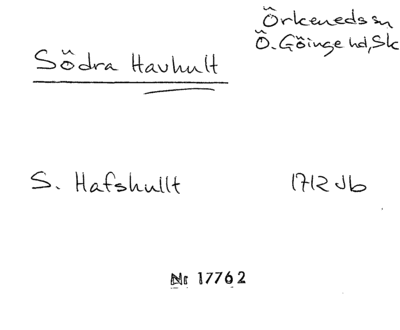 Örkeneds sn
Ö. Göinge hd, Sk
Södra Havhult
S. Hafshullt 1712 Jb
Nr 17762